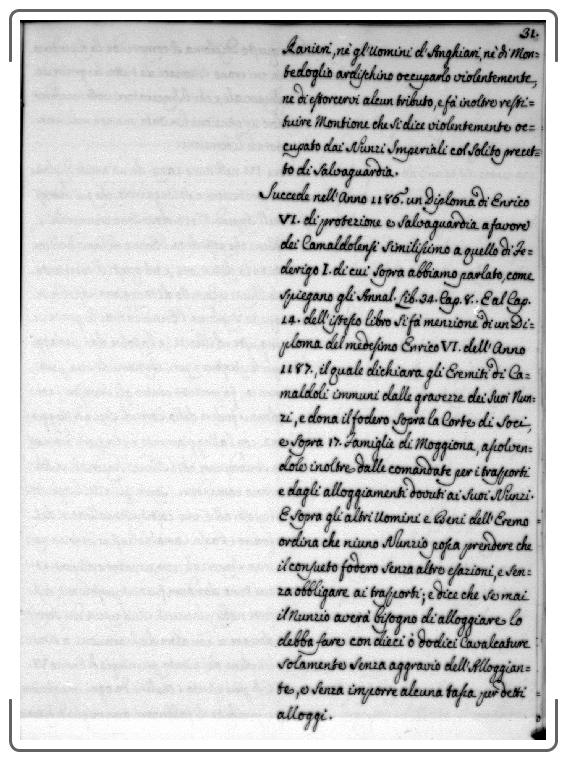 31.
Ranieri, nè gl'Uomini d'Anghiari, nè di Mon=
tedoglio ardischino occuparlo violentemente,
nè di estorcervi alcun tributo, e fà inoltre resti=
tuire Montione che si dice violentemente oc=
cupato dai Nunzi Imperiali col solito precet=
to di Salvaguardia.
Succede nell'Anno 1186. un Diploma di Enrico
VI. di protezione e Salvaguardia a favore
dei Camaldolensi similissimo a quello di Fe=
derigo I. di cui sopra abbiamo parlato, come
spiegano gli Annal. Lib. 34. Cap. 8. E al Cap.
14. dell'istesso libro si fà menzione di un Di=
ploma del medesimo Enrico VI. dell'Anno
1187., il quale dichiara gli Eremiti di Ca=
maldoli immuni dalle gravezze dei suoi Nun=
zi, e dona il fodero sopra la Corte di Soci,
e sopra 17. Famiglie di Moggiona, asolven=
dole inoltre dalle comandate per i trasporti
e dagli alloggiamenti dovuti ai suoi Nunzi.
E sopra gli altri Uomini e Beni dell'Eremo
ordina che niuno Nunzio possa prendere che
il consueto fodero senza altre esazioni, e sen=
za obbligare ai trasporti; e dice che se mai
il Nunzio averà bisogno di alloggiare lo
debba fare con dieci ò dodici Cavalcature
solamente senza aggravio dell'Alloggian=
te, e senza imporre alcuna tassa per detti
alloggi.